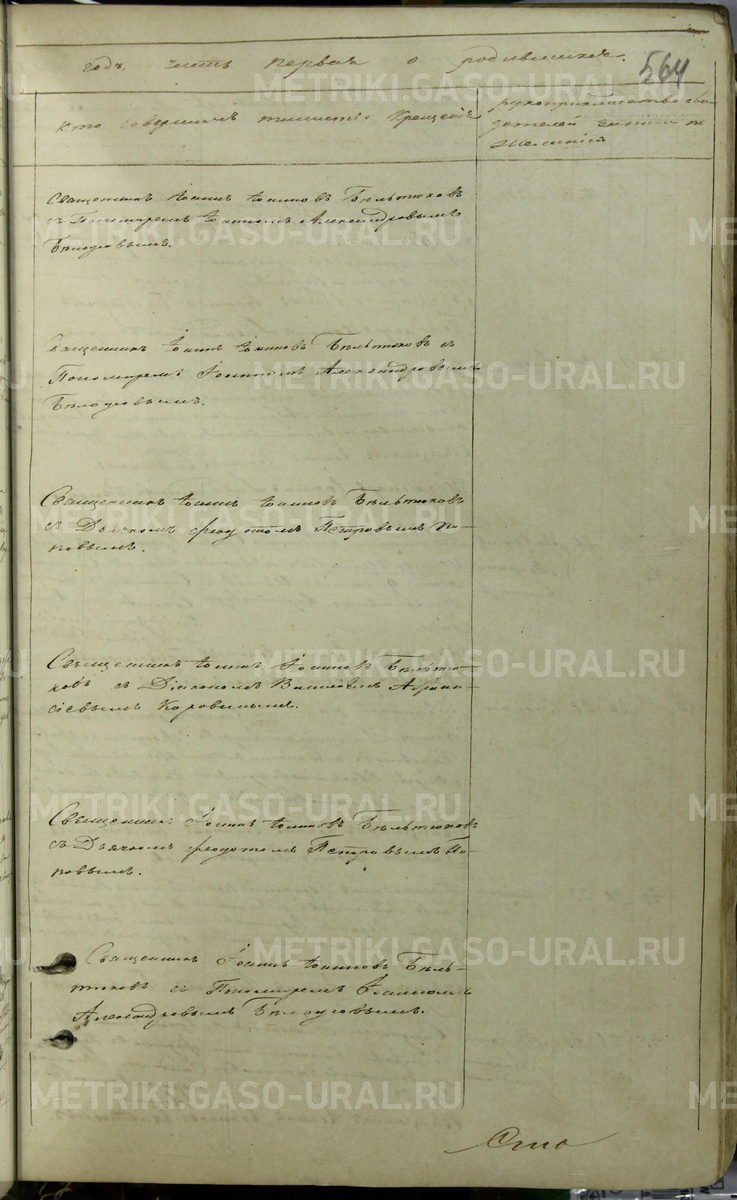 годъ, часть первая о родившихся.
564
Кто совершалъ таинство крещенія
рукоприкладство сви-
дѣтелей записи по
желанію
Священникъ Іоаннъ Іоанновъ Бѣльтюковъ
съ Пономаремъ Іоанномъ Александровымъ
Бѣлоусовымъ.
Священникъ Іоаннъ Іоанновъ Бѣльтюковъ съ
Пономаремъ Іоанномъ Александровымъ
Бѣлоусовымъ.
Священникъ Іоаннъ Іоанновъ Бѣльтюковъ
съ Дьячкомъ Ѳеодотомъ Петровымъ По-
повымъ.
Священникъ Іоаннъ Іоанновъ Бѣльтю-
ковъ съ Діакономъ Василіемъ Аѳана-
сіевымъ Коровинымъ.
Священникъ Іоаннъ Іоанновъ Бѣльтюковъ
съ Дьячкомъ Ѳеодотомъ Петровымъ По-
повымъ.
Священникъ Іоаннъ Іоанновъ Бѣль-
тюковъ съ Пономаремъ Іоанномъ
Александровымъ Бѣлоусовымъ.
METRIKI.GASO-URAL.RU